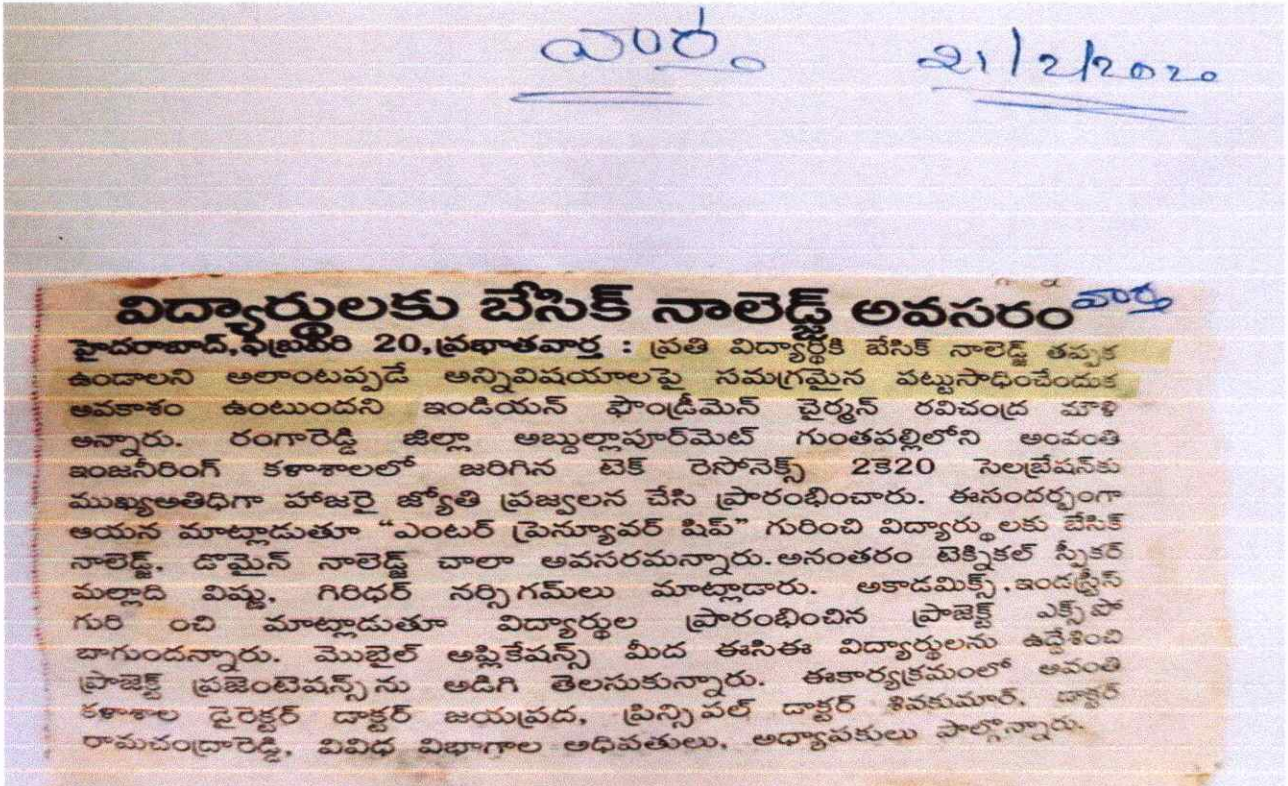 వార్త 21/2/2020
విద్యార్థులకు బేసిక్ నాలెడ్జ్ అవసరం వార్త
హైదరాబాద్,ఫిబ్రవరి 20,ప్రభాతవార్త : ప్రతి విద్యార్థికి బేసిక్ నాలెడ్జ్ తప్పక
ఉండాలని అలాంటప్పుడే అన్నివిషయాలపై సమగ్రమైన పట్టుసాధించేందుకు
అవకాశం ఉంటుందని ఇండియన్ ఫౌండ్రీమెన్ చైర్మన్ రవిచంద్ర మాళి
అన్నారు. రంగారెడ్డి జిల్లా అబ్దుల్లాపూర్‌మెట్ గుంతపల్లిలోని అంవంతి
ఇంజనీరింగ్ కళాశాలలో జరిగిన టెక్ రెసోనెక్స్ 2కె20 సెలబ్రేషన్‌కు
ముఖ్యఅతిధిగా హాజరై జ్యోతి ప్రజ్వలన చేసి ప్రారంభించారు. ఈసందర్భంగా
ఆయన మాట్లాడుతూ “ఎంటర్ ప్రెన్యూవర్ షిప్” గురించి విద్యార్థు లకు బేసిక్
నాలెడ్జ్. డొమైన్ నాలెడ్జ్ చాలా అవసరమన్నారు.అనంతరం టెక్నికల్ స్పీకర్
మల్లాది విష్ణు, గిరిధర్ నర్సిగమ్‌లు మాట్లాడారు. అకాడమిక్స్,ఇండస్ట్రీస్
గురి ంచి మాట్లాడుతూ విద్యార్థుల ప్రారంభించిన ప్రాజెక్ట్ ఎక్స్‌పో
బాగుందన్నారు. మొబైల్ అప్లికేషన్స్ మీద ఈసిఈ విద్యార్థులను ఉద్దేశించి
ప్రాజెక్ట్ ప్రజెంటెషన్స్‌ను అడిగి తెలసుకున్నారు. ఈకార్యక్రమంలో అవంతి
కళాశాల డైరెక్టర్ డాక్టర్ జయప్రద, ప్రిన్సిపల్ డాక్టర్ శివకుమార్, డాక్టర్
రామచంద్రారెడ్డి, వివిధ విభాగాల అధిపతులు, అధ్యాపకులు పాల్గొన్నారు.